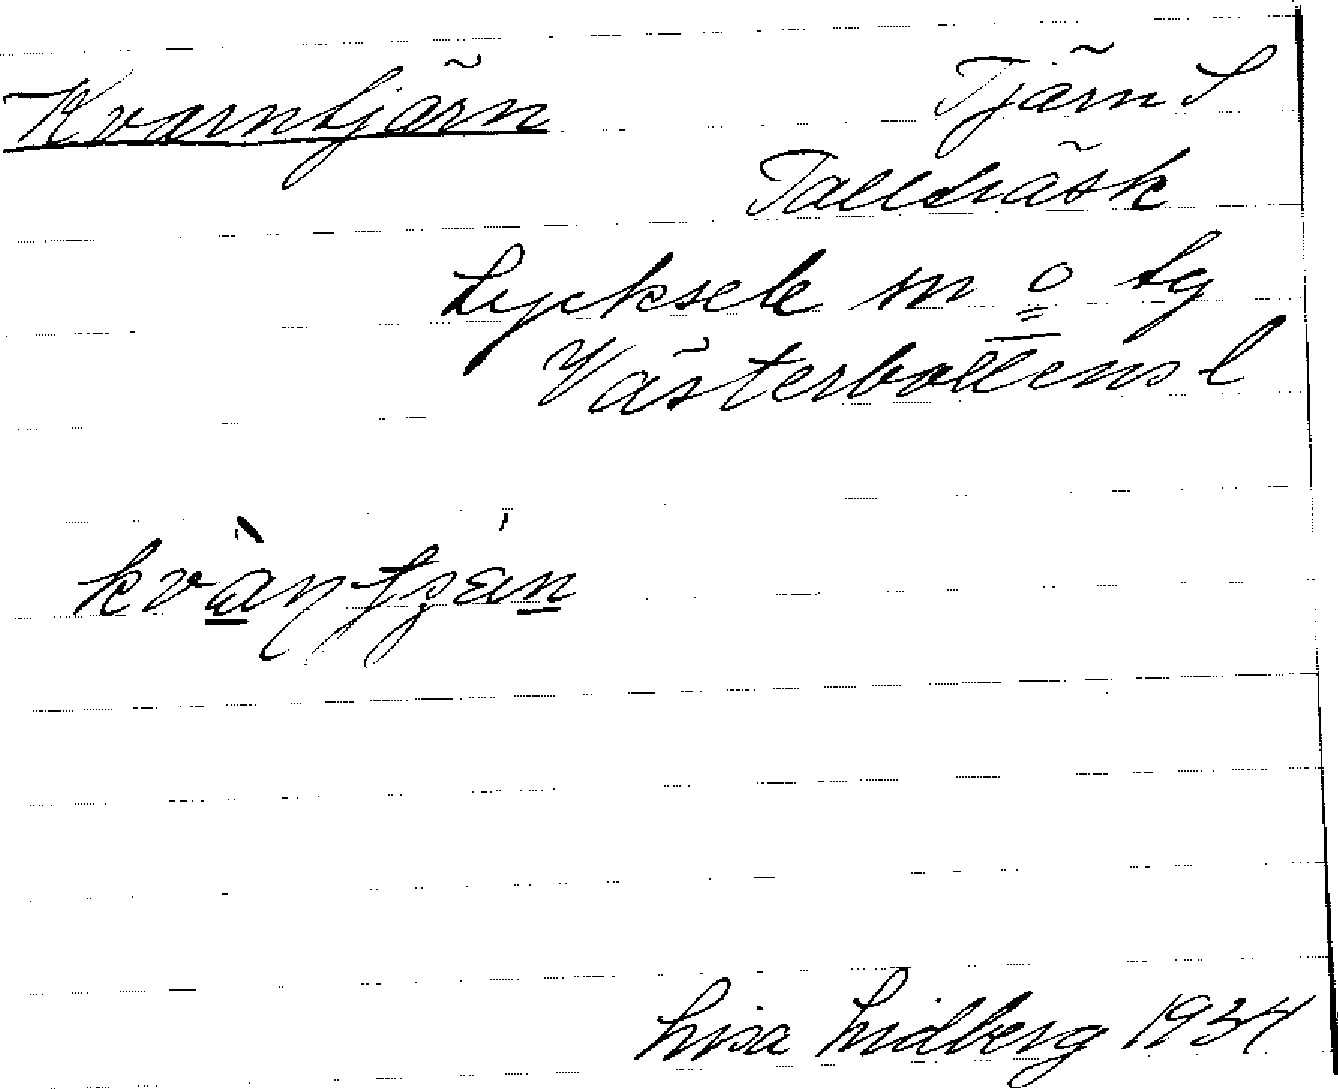 Kvarntjärn Tjärn S
Tallträsk
Lycksele sn o tg
Västerbottens l
kvàɳtʂä́n
Lisa Lidberg 1934